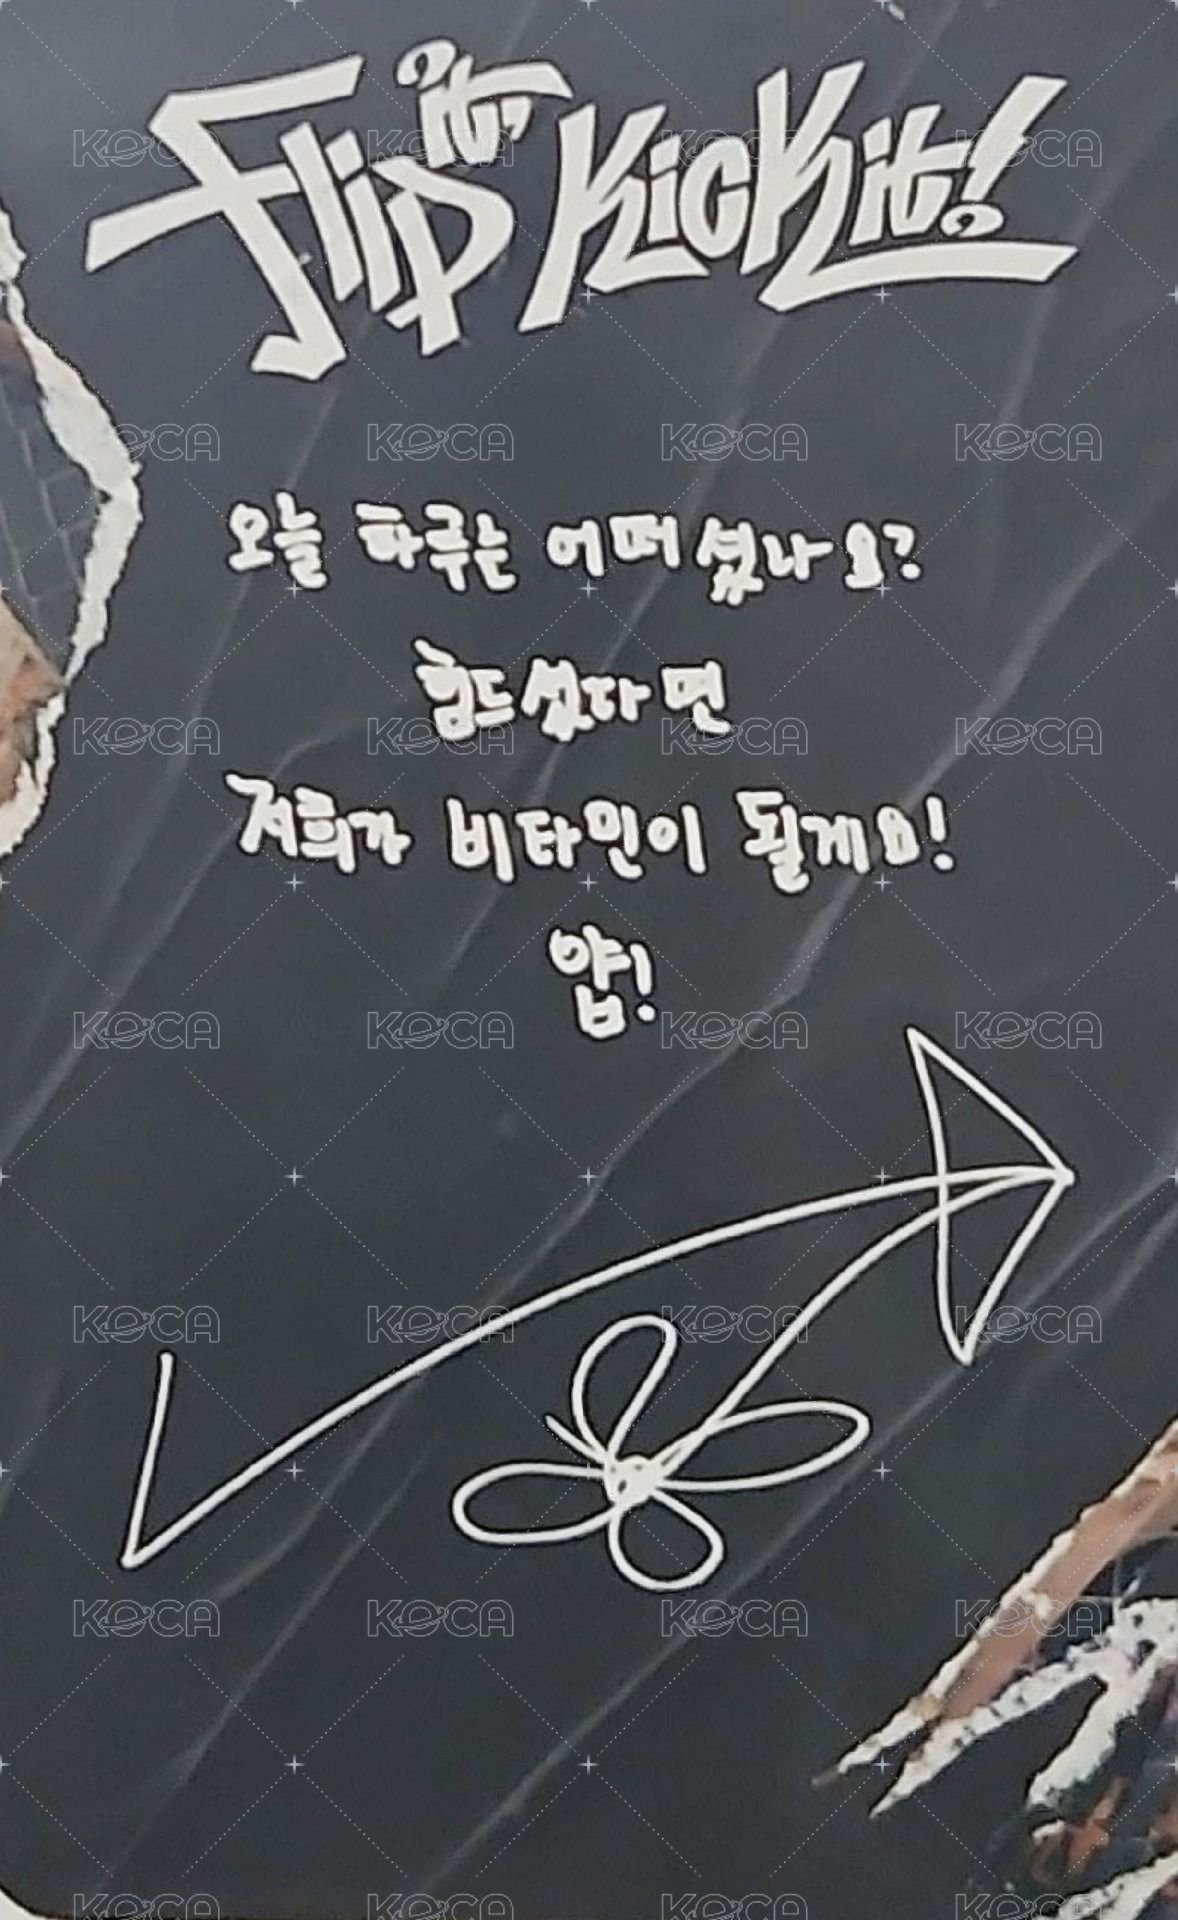 Flip it, Kick it!
오늘 하루는 어떠셨나요?
힘드셨다면
저희가 비타민이 될게요!
얍!
KOCA